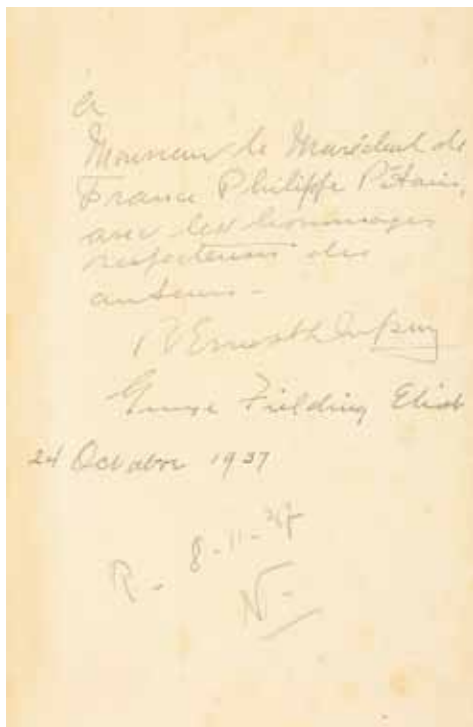 à
Monsieur le Maréchal de
France Philippe Pétain,
avec les hommages
respectueux des
auteurs -
R Ernest Dupuy
George Fielding Eliot
24 Octobre 1937
R - 8-11-37
N -